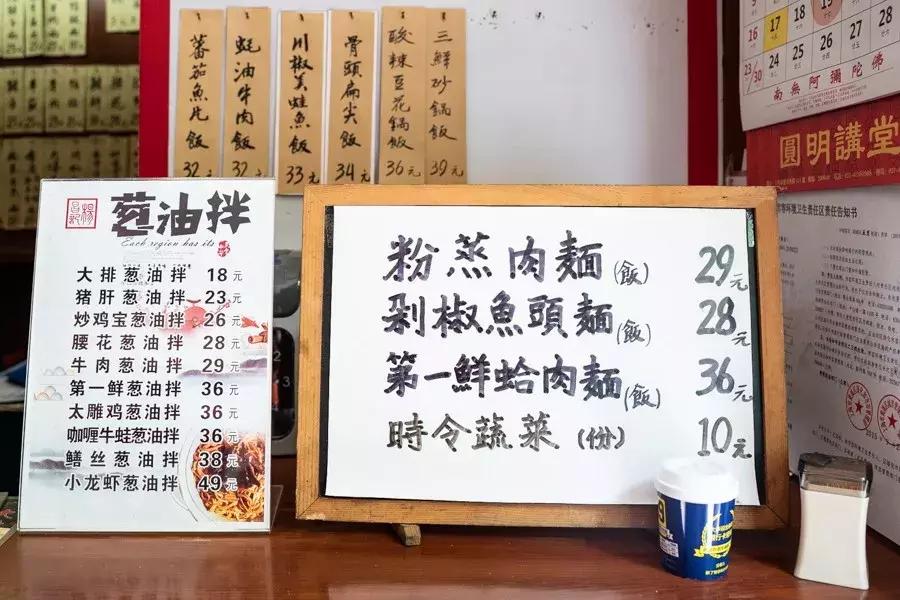 蕃茄魚片飯 32元
蚝油牛肉飯 32元
川椒美蛙魚飯 33元
骨頭扁尖飯 34元
酸辣豆花鍋飯 36元
三鮮砂鍋飯 39元
葱油拌
Each region has its
大排葱油拌 18元
猪肝葱油拌 23元
炒鸡宝葱油拌 26元
腰花葱油拌 28元
牛肉葱油拌 29元
第一鲜葱油拌 36元
太雕鸡葱油拌 36元
咖喱牛蛙葱油拌 36元
鳝丝葱油拌 38元
小龙虾葱油拌 49元
粉蒸肉麵(飯) 29元
剁椒魚頭麵(飯) 28元
第一鮮蛤肉麵(飯) 36元
時令蔬菜(份) 10元
16 17 18 19 20 21
23/30 24 25 26 27 28
南無阿彌陀佛
圓明講堂
环境卫生责任区责任告知书